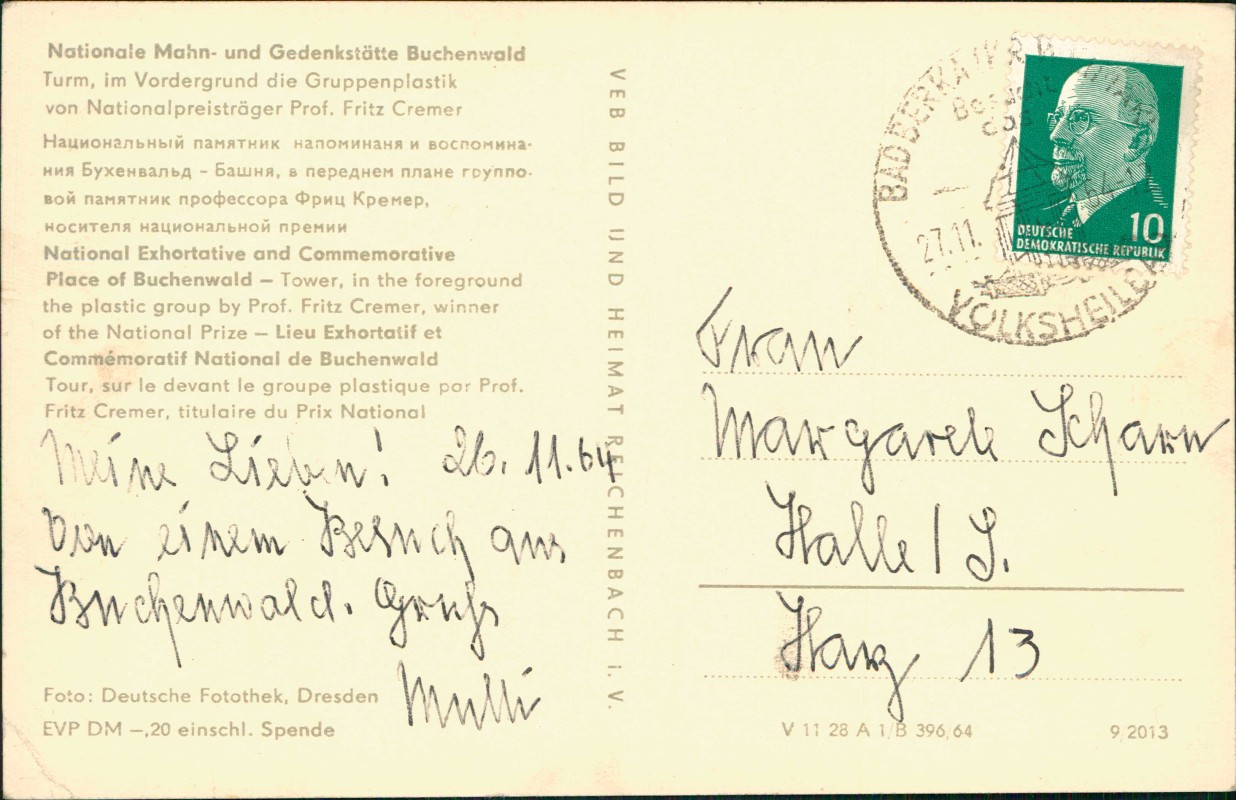 Nationale Mahn- und Gedenkstätte Buchenwald
Turm, im Vordergrund die Gruppenplastik
von Nationalpreisträger Prof. Fritz Cremer
Национальный памятник напоминаня и воспомина-
ния Бухенвальд – Башня, в переднем плане группо-
вой памятник профессора Фриц Кремер,
носителя национальной премии
National Exhortative and Commemorative
Place of Buchenwald – Tower, in the foreground
the plastic group by Prof. Fritz Cremer, winner
of the National Prize – Lieu Exhortatif et
Commémoratif National de Buchenwald
Tour, sur le devant le groupe plastique par Prof.
Fritz Cremer, titulaire du Prix National
Meine Lieben! 26.11.64
Von einem Besuch aus
Buchenwald. Gruß
Mutti
Foto: Deutsche Fotothek, Dresden
EVP DM –,20 einschl. Spende
VEB BILD UND HEIMAT REICHENBACH I. V.
BAD BERKA
27.11.
VOLKSHEILB
10
DEUTSCHE
DEMOKRATISCHE REPUBLIK
Frau
Margarete Scharn
Halle/S.
Harz 13
V 11 28 A 1/B 396/64
9/2013